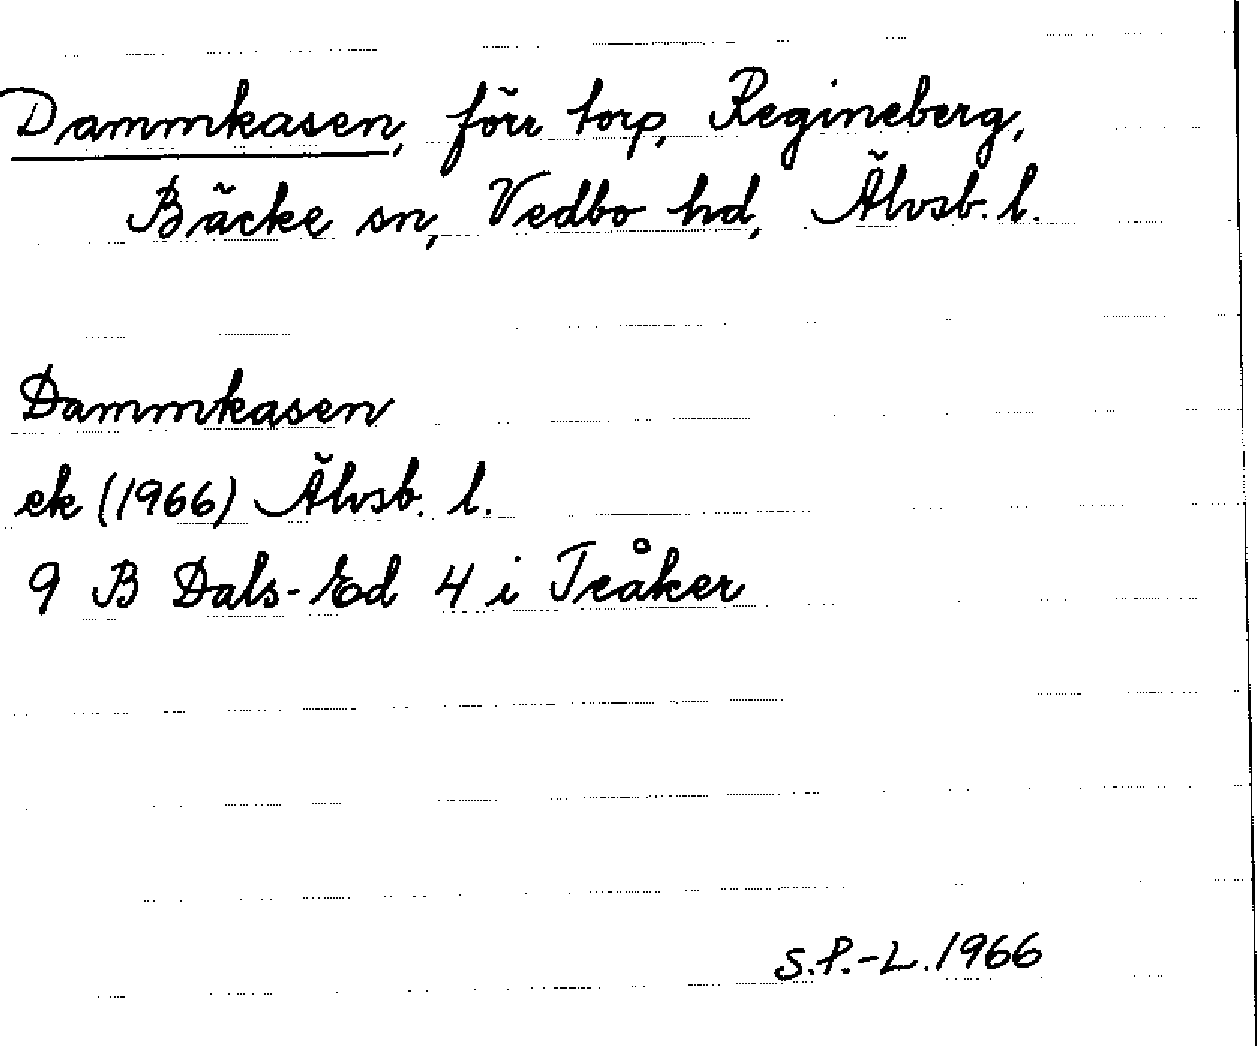 Dammkasen, förr torp, Regineberg,
Bäcke sn, Vedbo hd, Älvsb. l.
Dammkasen
ek (1966) Älvsb. l.
9 B Dals-Ed 4 i Tråker
S.P.-L. 1966